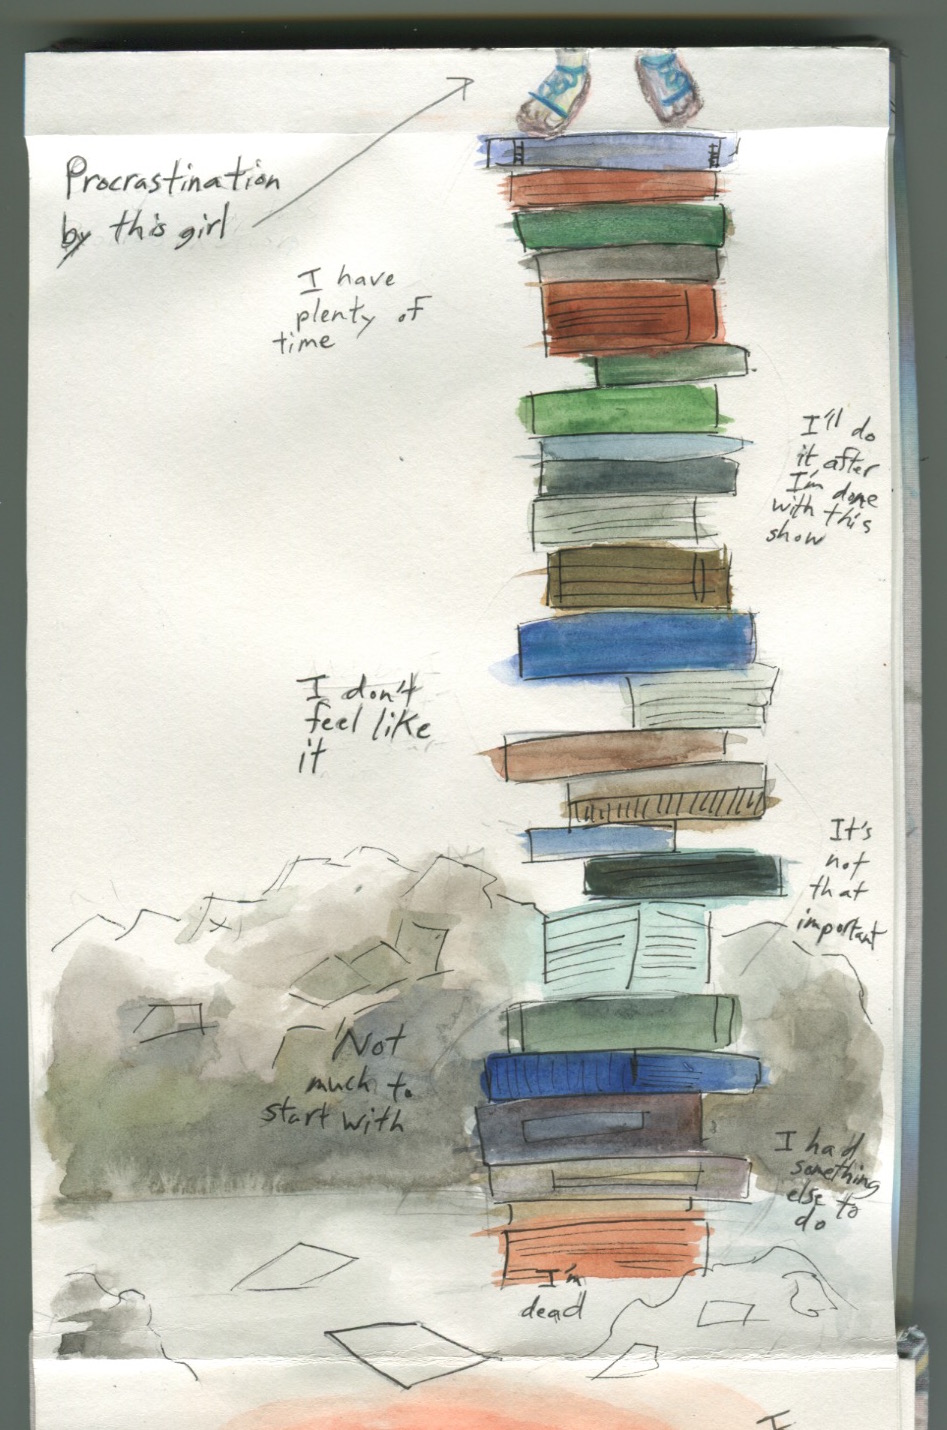 Procrastination
by this girl
I have
plenty of
time
I'll do
it after
I'm done
with this
show
I don't
feel like
it
It's
not
that
important
Not
much to
start with
I had
something
else to
do
I'm
dead
I